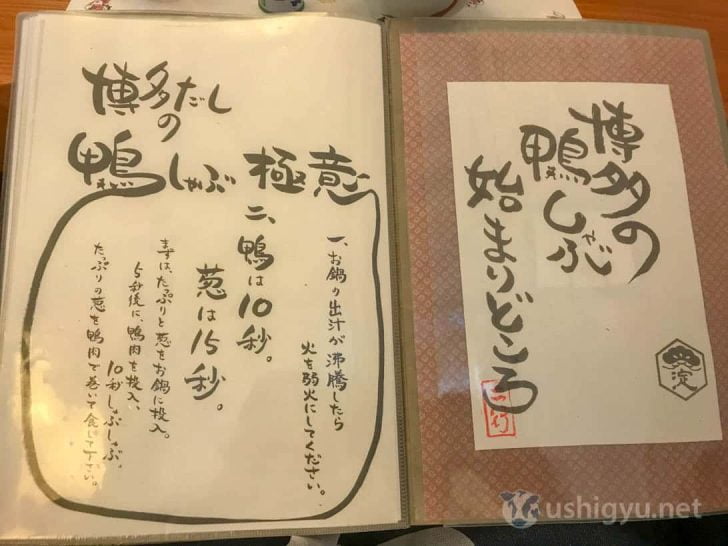 博多だし
の
鴨しゃぶ 極意
一、お鍋の出汁が沸騰したら
火を弱火にしてください。
二、鴨は10秒。
葱は15秒。
まずは、たっぷりと葱をお鍋に投入。
5秒後に、鴨肉を投入、
10秒しゃぶしゃぶ、
たっぷりの葱を鴨肉で巻いて食して下さい。
博多の
鴨しゃぶ
始まりどころ
淀
ushigyu.net